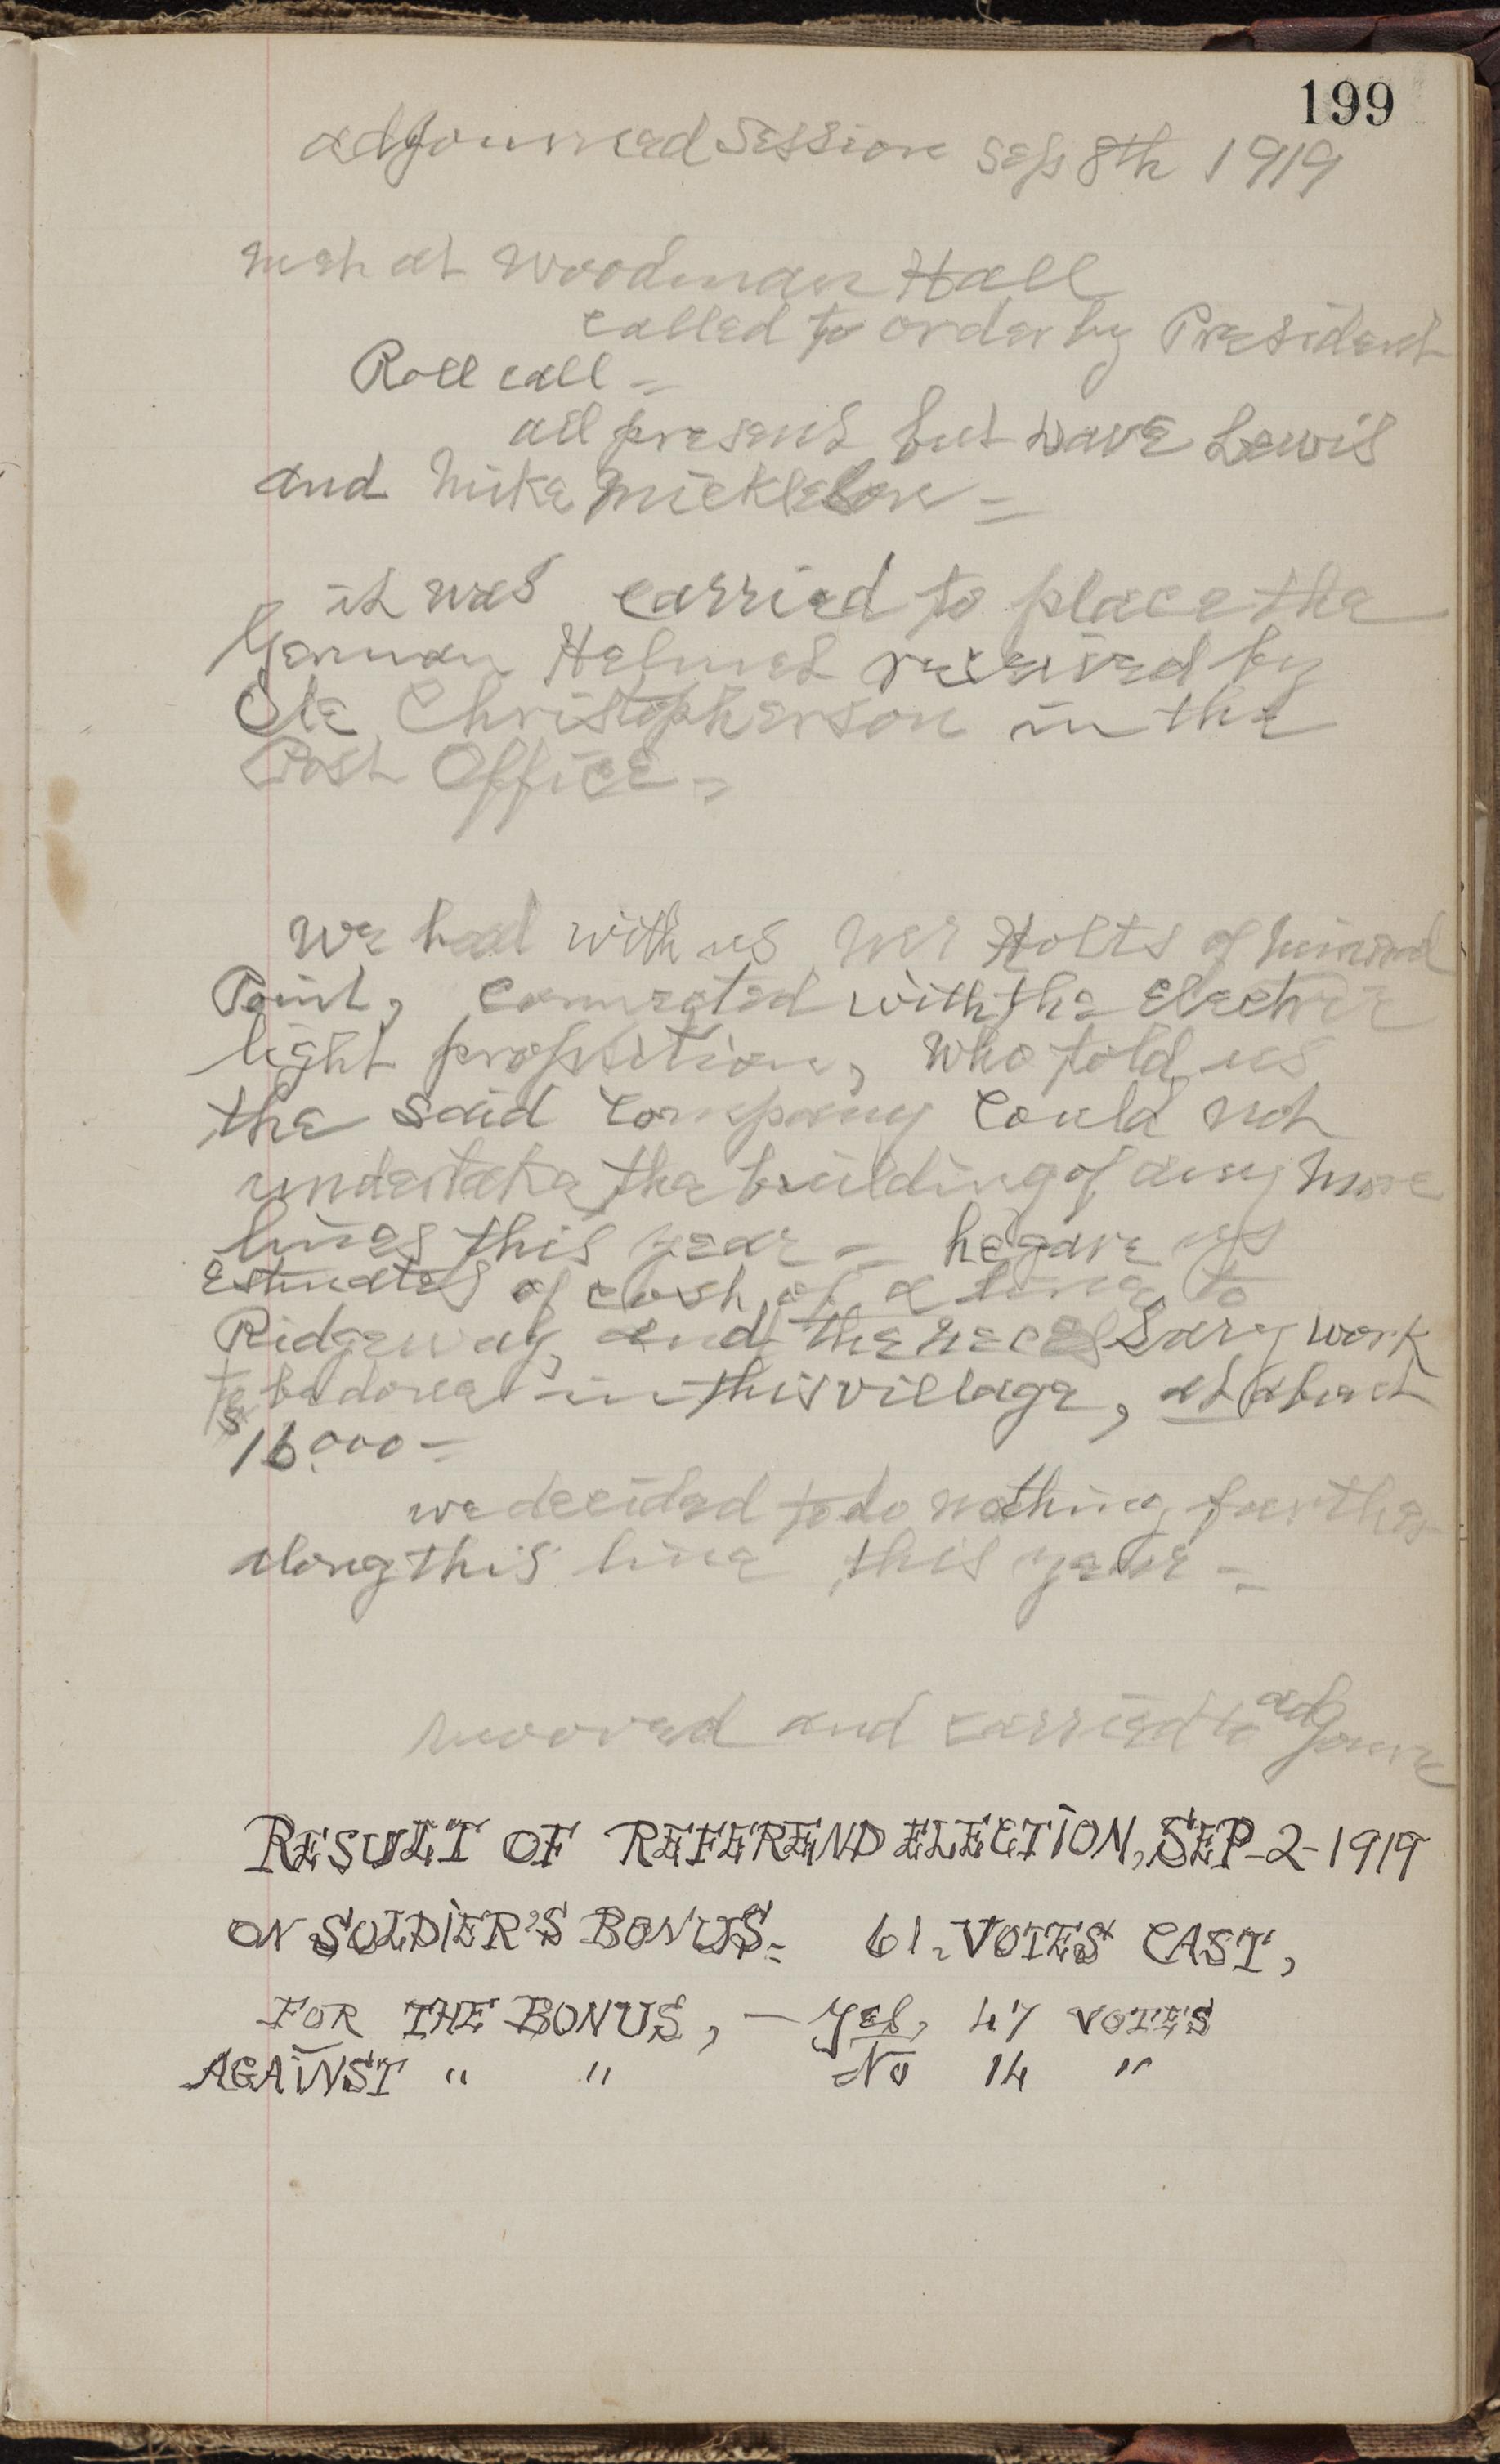 199
adjourned Session Sep 8th 1919
met at Woodman Hall
called to order by President
Roll call =
all present but Dave Lewis
and Mike Mickleson =
it was carried to place the
German Helmet received by
Ole Christopherson in the
Post Office =
We had with us Mr Holts of Mineral
Point, connected with the Electric
light proposition, who told us
the said Company could not
undertake the building of any more
lines this year = he gave us
Estimates of cost of a line to
Ridgeway, and the necessary work
to be done in this village, at about
$16.000 =
we decided to do nothing further
along this line this year =
mooved and carried to adjourn
RESULT OF REFEREND ELECTION, SEP-2-1919
ON SOLDIER'S BONUS = 61. VOTES CAST,
FOR THE BONUS, — Yes, 47 VOTES
AGAINST " " No 14 "